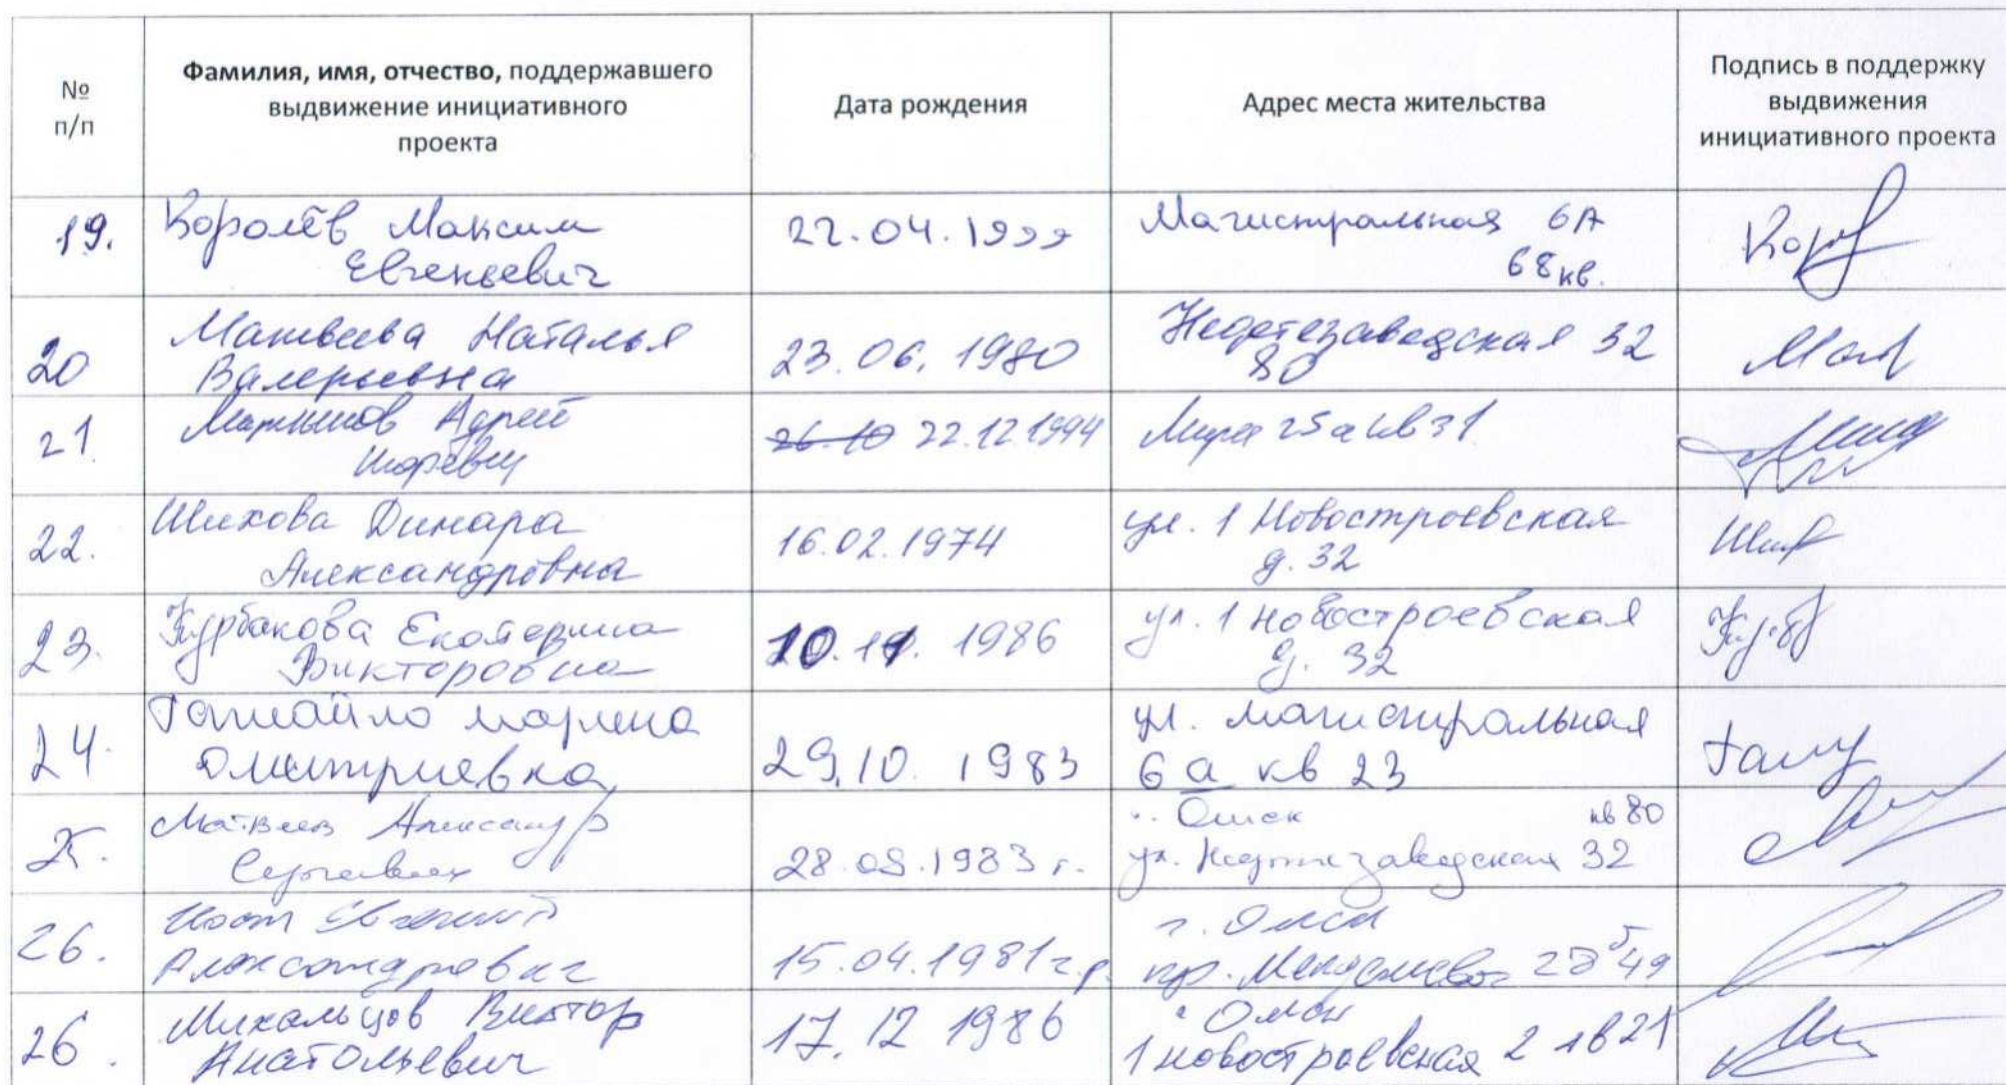 №
п/п
Фамилия, имя, отчество, поддержавшего
выдвижение инициативного
проекта
Дата рождения
Адрес места жительства
Подпись в поддержку
выдвижения
инициативного проекта
19.
Королёв Максим
Евгеньевич
22.04.1999
Магистральная 6А
68 кв.
20
Матвеева Наталья
Валерьевна
23.06.1980
Нефтезаводская 32
80
21
Адрей
22.12.1994
Мира 25а кв 31
22.
Шихова Динара
Александровна
16.02.1974
ул. 1 Новостроевская
д. 32
23.
Курбакова Екатерина
Викторовна
1986
ул. 1 Новостроевская
д. 32
24.
марина
Дмитриевна
29.10. 1983
ул. магистральная
6 а кв 23
25.
Матвеев Александр
Сергеевич
1983 г.
Омск кв 80
ул. Нефтезаводская 32
26.
Александровна
15.04.1981 г.р.
г. Омск
пр. Менделеева 49
26.
Михальцов Виктор
Анатольевич
17.12 1986
г Омск
1 новостроевская 2 кв 21